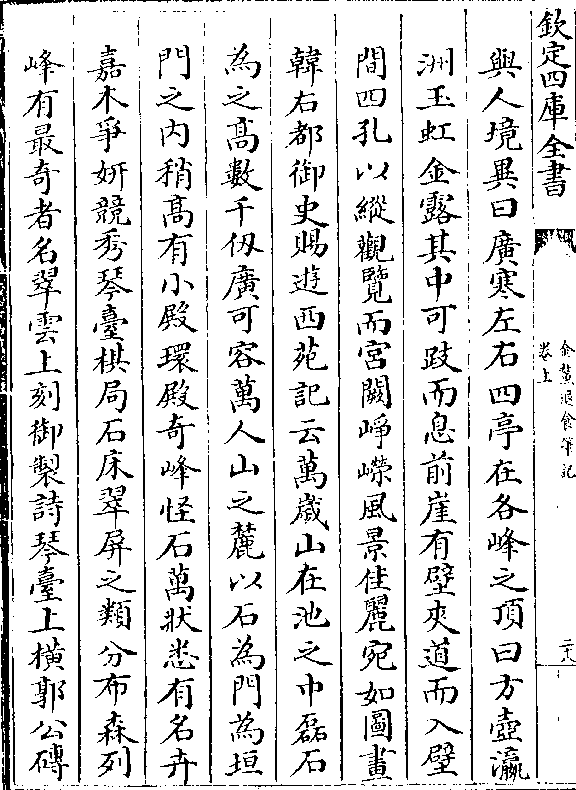 欽定四庫全書
金鰲退食筆記
卷上
二十八
與人境異曰廣寒左右四亭在各峰之頂曰方壺瀛
洲玉虹金露其中可跂而息前崖有壁夾道而入壁
間四孔以縱觀覽而宮闕崢嶸風景佳麗宛如圖畫
韓右都御史賜遊西苑記云萬歲山在池之中磊石
為之髙數千仭廣可容萬人山之麓以石為門為垣
門之内稍髙有小殿環殿奇峰怪石萬狀悉有名卉
嘉木爭妍競秀琴臺棋局石床翠屏之類分布森列
峰有最奇者名翠雲上刻御製詩琴臺上橫郭公磚